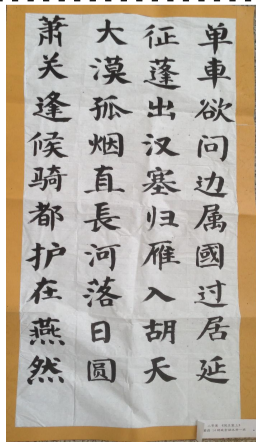 单車欲问边属國过居延
征蓬出汉塞归雁入胡天
大漠孤烟直長河落日圆
萧关逢候骑都护在燕然